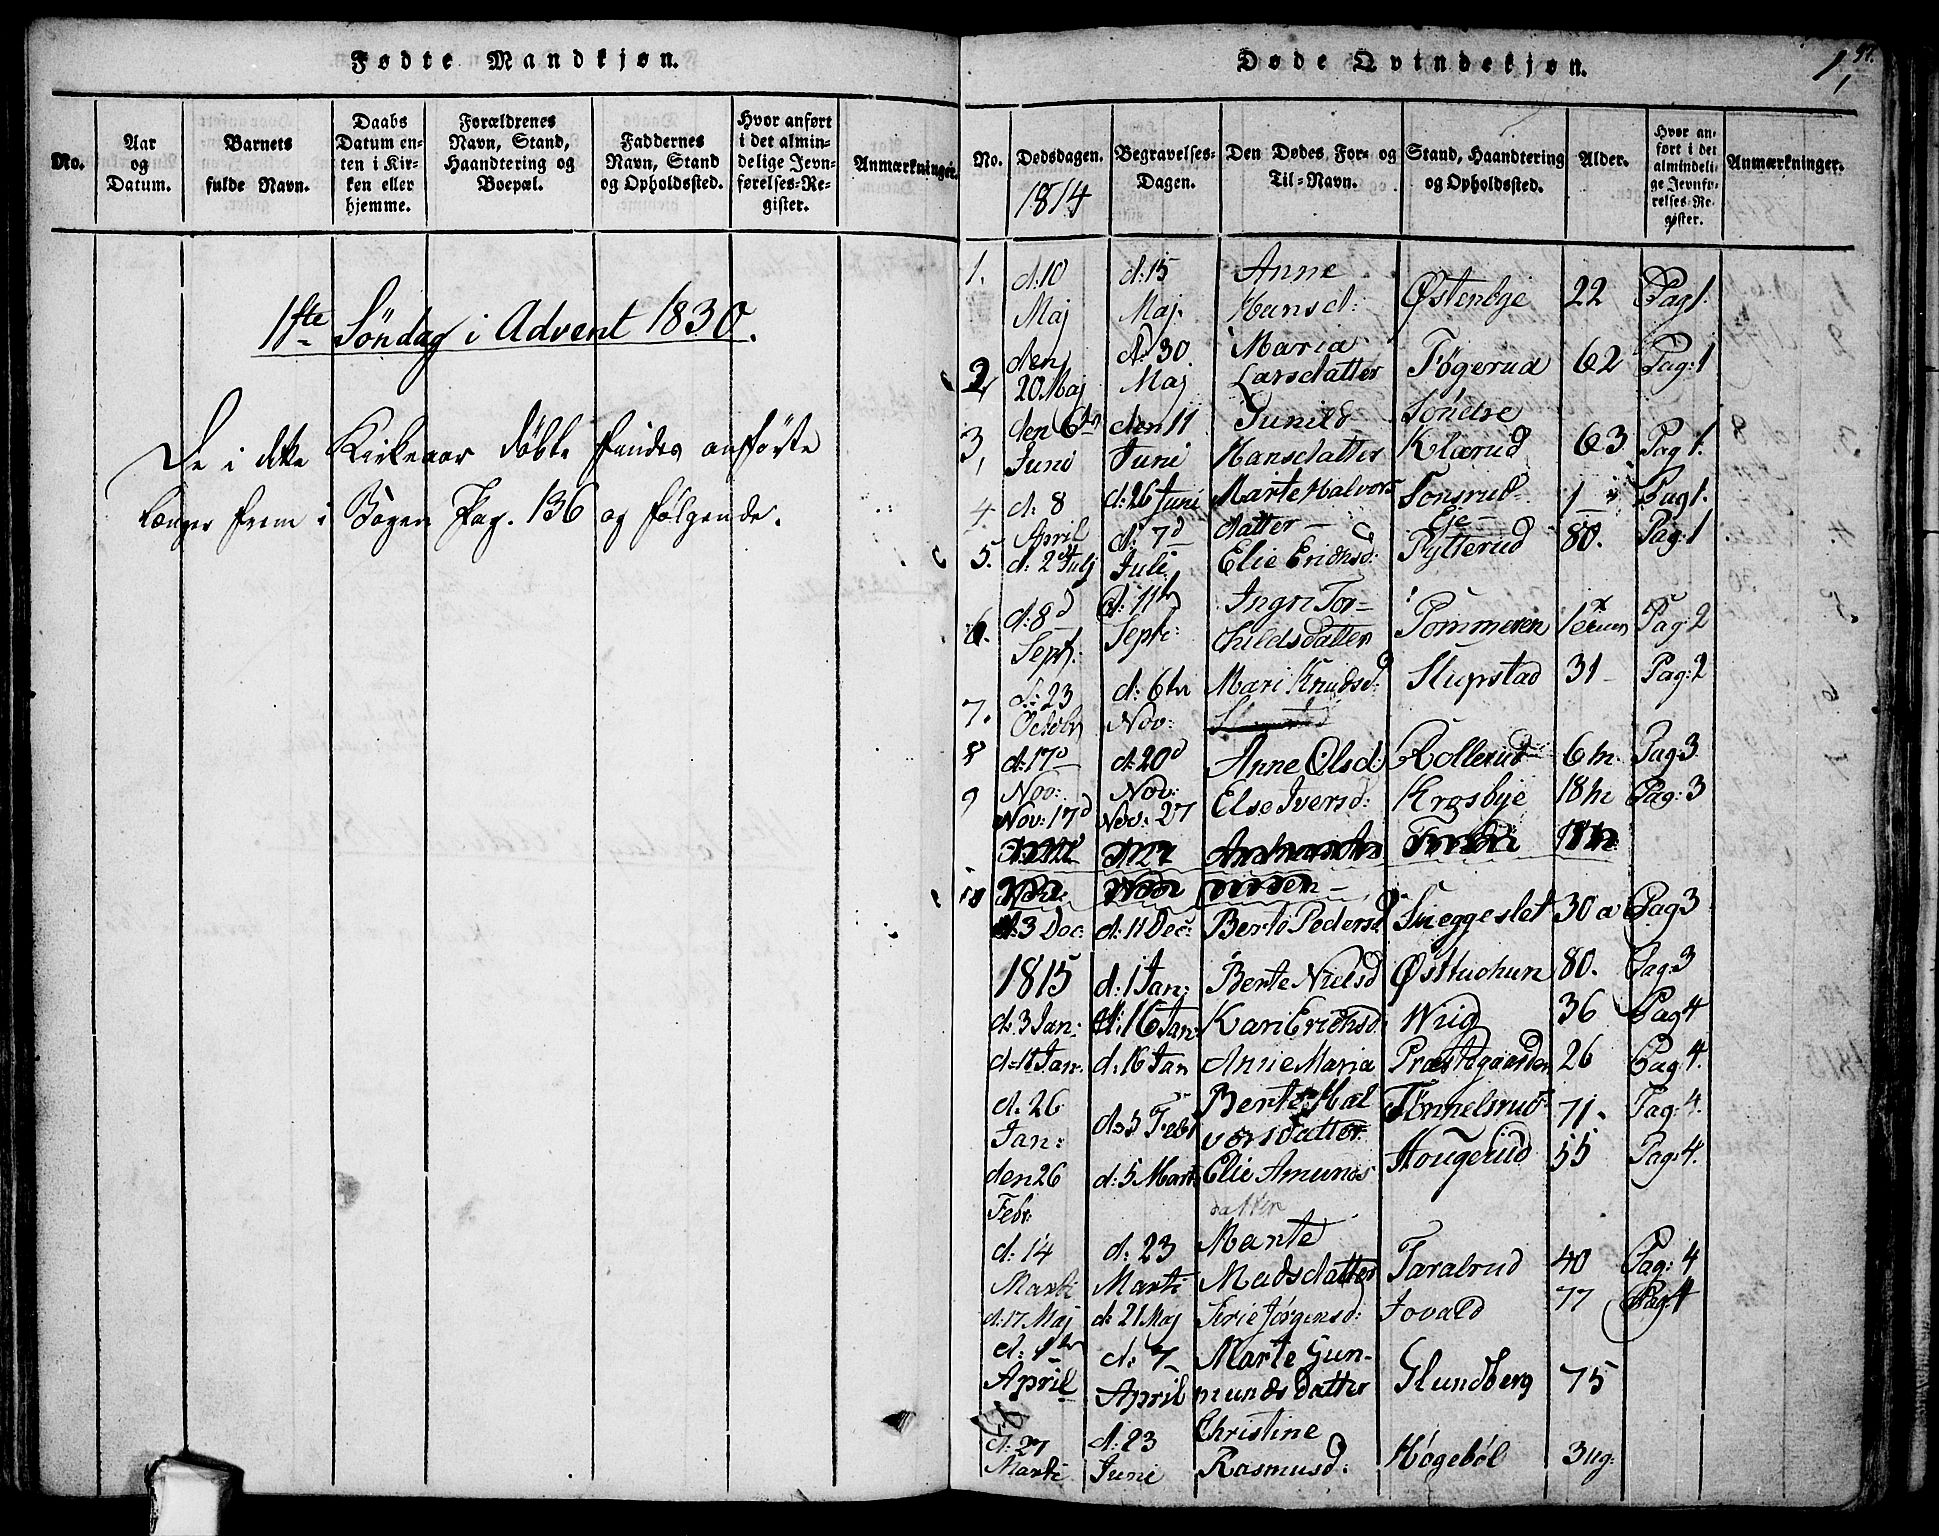 Fødte Mandkjøn.
No.
Aar og Datum.
Barnets fulde Navn.
Daabs Datum enten i Kirken eller hjemme.
Forældrenes Navn, Stand, Haandtering og Boepæl.
Faddernes Navn, Stand og Opholdssted.
Hvor anført i det almindelige Jevnførelses-Register.
Anmærkninger.
1ste Söndag i Advent 1830.
De i dette Kirkeaar döbte findes anförte
længer frem i Bogen Pag. 136 og følgende.
Døde Qvindekjøn.
97.
No.
Dødsdagen.
1814
Begravelses-Dagen.
Den Dødes For- og Til-Navn.
Stand, Haandtering og Opholdssted.
Alder.
Hvor anført i det almindelige Jevnførelses-Register.
Anmærkninger.
1. d: 10 Maj d: 15 Maj. Anne Hansd: Østenbye 22 Pag 1.
2 den 20 Maj d: 30 Maj Maria Larsdatter Føgerud 62 Pag: 1
3, den 6te Juni den 11 Juni Gunild Hansdatter Söndre Klarud 63 Pag 1.
4. d: 8 April d: 26 Juni Marte Halvors datter – Tonsrud Eje 1 Pag 1.
5. d: 2 Julj d: 7d Juli Elie Erichsd: Rytterud 80. Pag: 1
6. d: 8d Sept: d: 11te Sept: Ingri Tor= childsdatter Pommeren Pag: 2
7. d: 23 Octobr d: 6te Nov: Mari Knudsd: Slupstad 31 – Pag: 2
8 d: 17d Nov: d: 20d Nov: Anne Olsd: Rollerud 6 m. Pag: 3
9 Nov: 17d Nov: 27 Else Iversd: Krosbye 18 m Pag: 3
10 d: 3 Dec: d: 11 Dec: Berte Pedersd Sneggeslet 30 a Pag 3
1815 d: 1 Jan: Berte Nielsd Østtuchun 80. Pag: 3
d: 3 Jan: d: 16 Jan: Kari Erichsd: Wiig 36 Pag 4
d: 11 Jan: d: 16 Jan Anne Maria Præstegaarden 26 Pag 4.
d. 26 Jan: d: 5 Febr Berte Hal vorsdatter Tönnelsrud 71. Pag: 4.
den 26 Febr: d: 5 Marti Elie Amunds datter Hougerud 55 Pag: 4.
d: 14 Marti d: 23 Marti Marte Madsdatter Taralrud 40 Pag: 4
d: 17 Maj d: 21 Maj Sirie Jørgensd: Jovald 77 Pag: 4
d: 1te April d: 7 April Marte Gun- munds datter Glundberg 75
d: 27 Marti d: 23 Juni Christine Rasmusd: Høgeböl 3 ug: